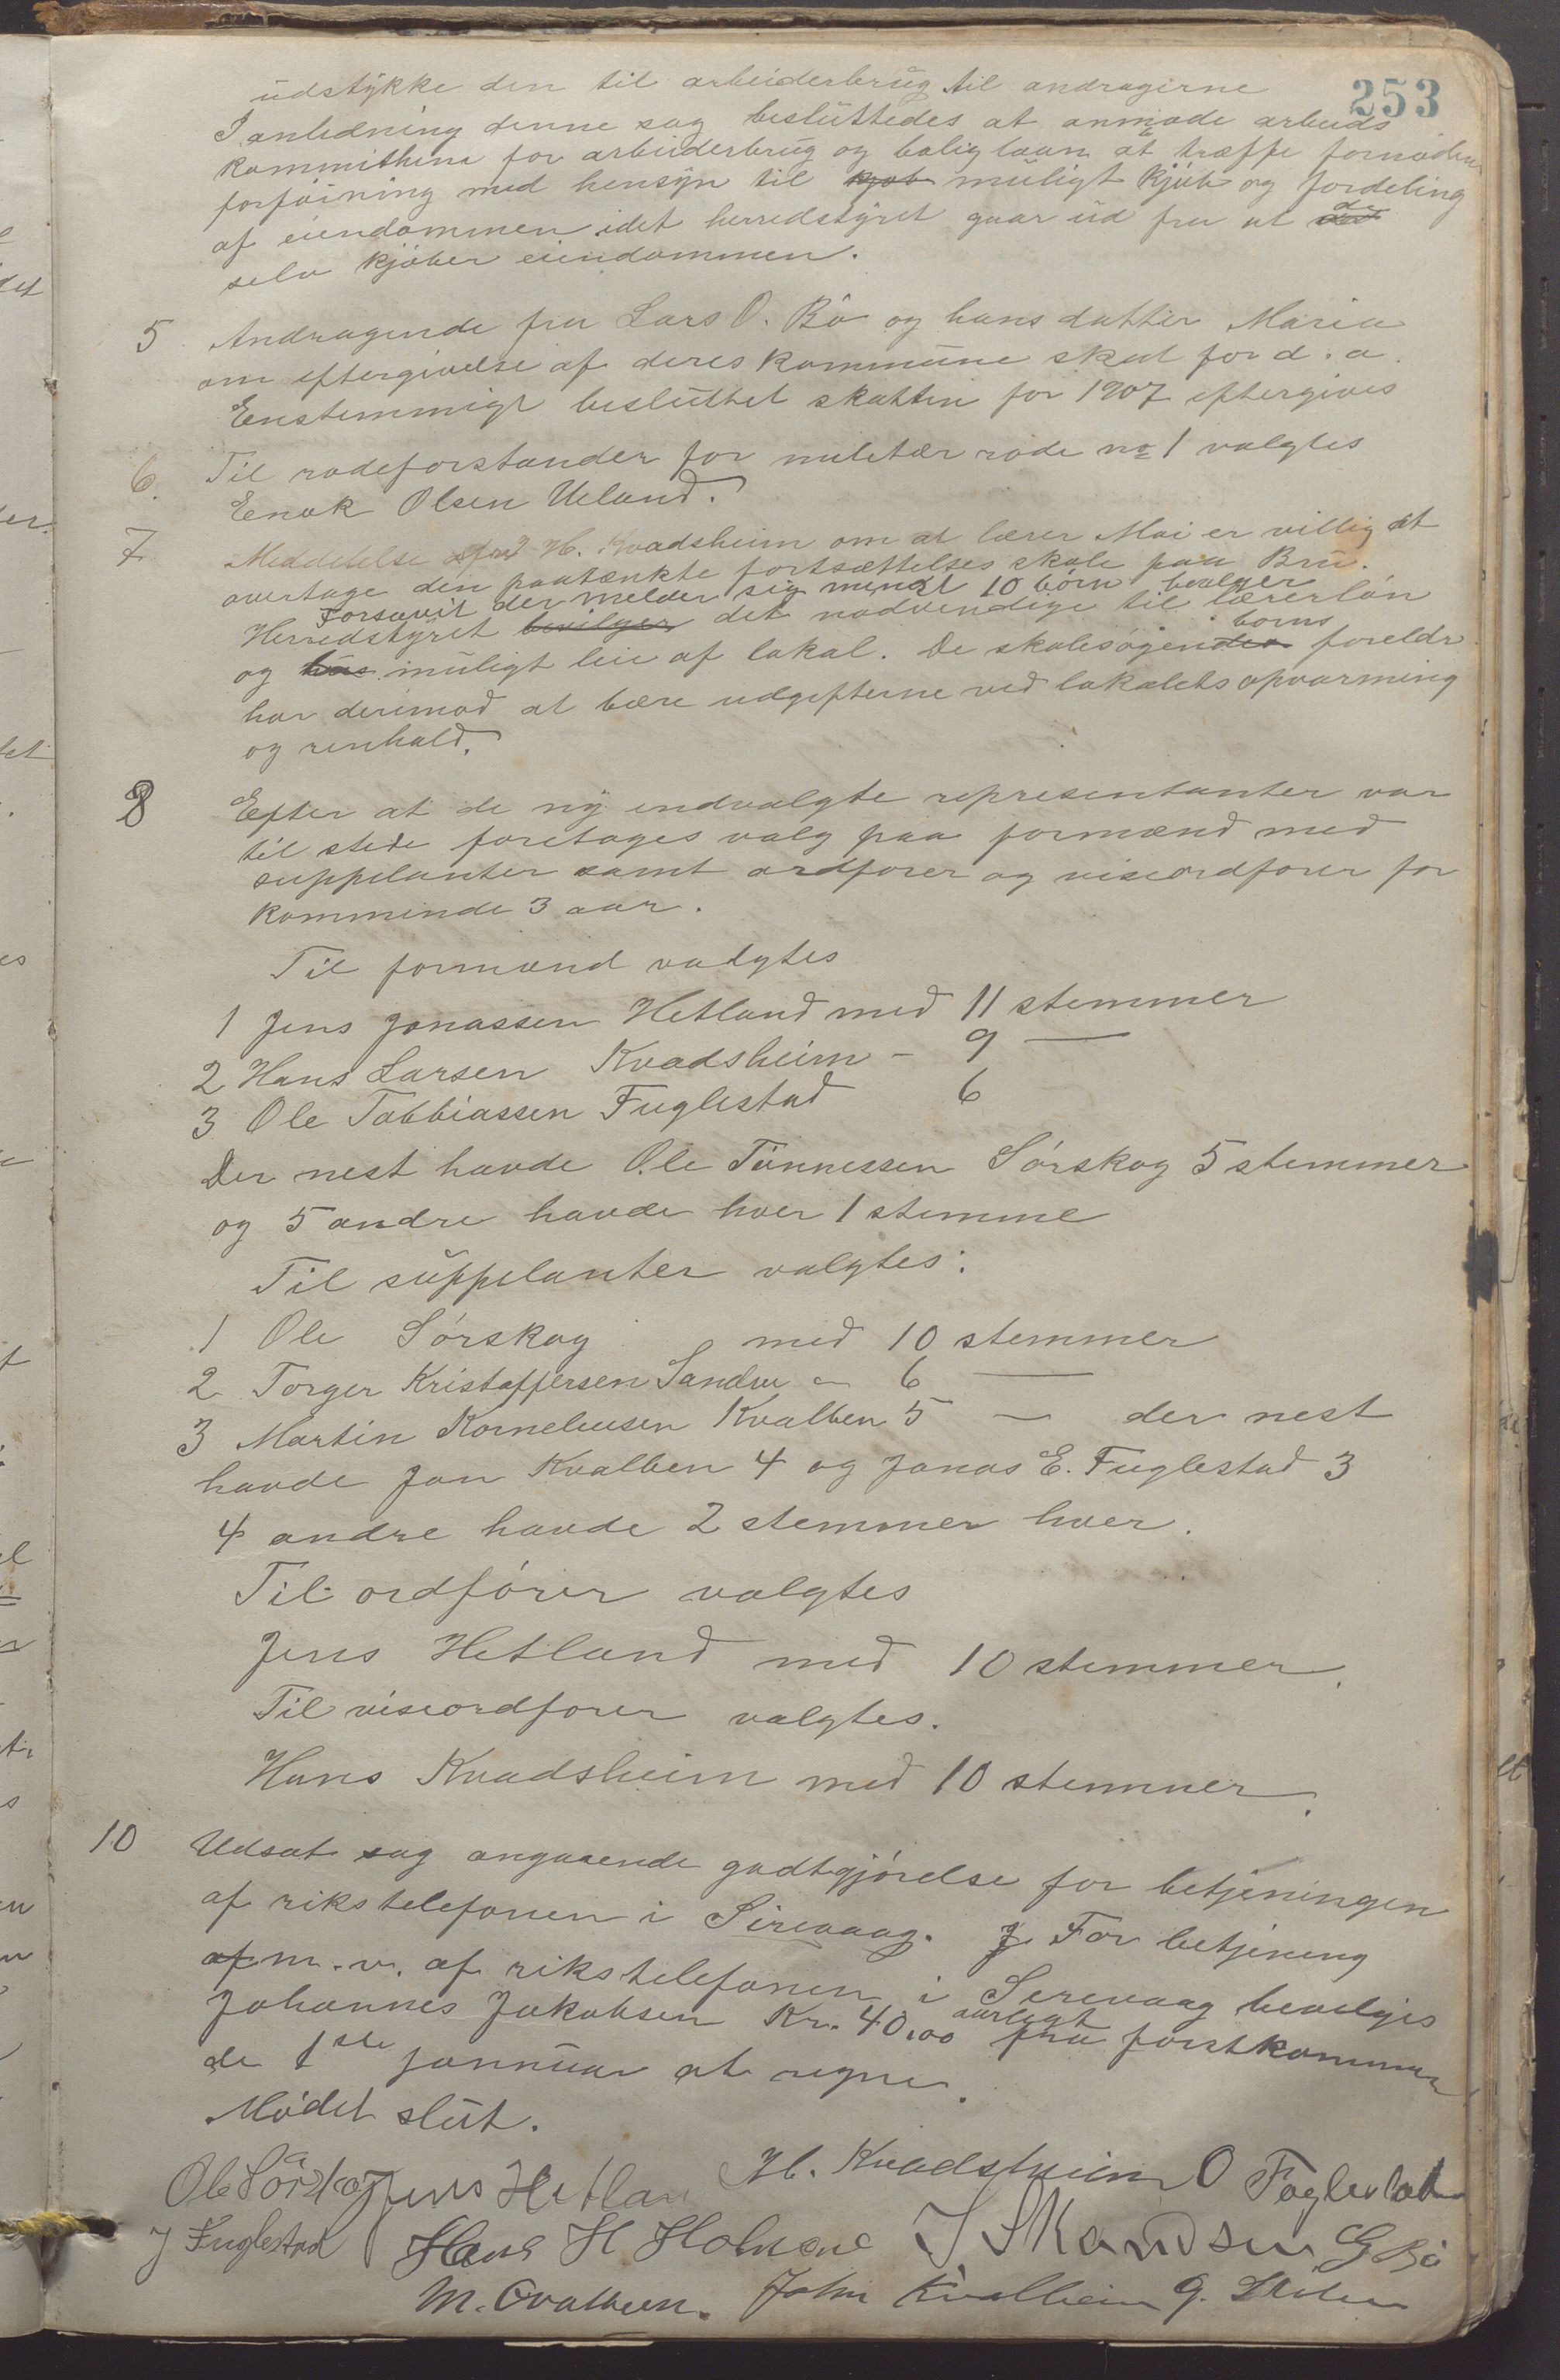 253
udstykke den til arbeiderbrug til andragerne
I anledning denne sag besluttedes at anmode arbeids
kommitheen for arbeiderbrug og boliglaan at træffe fornøden
forføining med hensyn til kjøb muligt kjøb og fordeling
af eiendommen idet herredstyret gaar ud fra at de
selv kjøber eiendommen.
5 Andragende fra Lars O. Bø og hans datter Maria
om eftergivelse af deres kommune skat for d. a.
Enstemmigt besluttet skatten for 1907 eftergives
6. Til rodeforstander for miletær rode no 1 valgtes
Enok Olsen Ueland.
7 Meddelelse fra H. Kvadsheim om at lærer Moi er villig at
overtage den paatænkte fortsættelses skole paa Bru.
Forsavit der melder sig minst 10 børn bevilger
Herredstyret bevilger det nødvendige til lærerløn
og hus muligt leie af lokal. De skolesøgendes børns foreldr
har derimod at bære udgifterne ved lokalets opvarming
og renhold.
8 Efter at de ny indvalgte representanter var
til stede foretages valg paa formænd med
suppelanter samt ordfører og viseordfører for
kommende 3 aar.
Til formænd valgtes
1 Jens Jonassen Hetland med 11 stemmer
2 Hans Larsen Kvadsheim - 9 —
3 Ole Tobbiassen Fuglestad 6
Der nest havde Ole Tønnessen Sørskog 5 stemmer
og 5 andre havde hver 1 stemme
Til suppelanter valgtes:
1 Ole Sørskog med 10 stemmer
2 Torger Kristoffersen Sandve - 6 —
3 Martin Korneliusen Kvalben 5 — der nest
havde Jon Kvalben 4 og Jonas E. Fuglestad 3
4 andre havde 2 stemmer hver.
Til ordfører valgtes
Jens Hetland med 10 stemmer.
Til viseordfører valgtes.
Hans Kvadsheim med 10 stemmer.
10 Udsat sag angaaende godtgjørelse for betjeningen
af rikstelefonen i Sirevaag. For betjening
af m.v. af rikstelefonen i Serevaag bevilges
Johannes Jakobsen Kr. 40,00 aarligt fra førstkommen
de 1ste jannuar at regne.
Mødet slut.
Ole Sørskog Jens Hetland H. Kvadsheim O Foglestad
J Fuglestad Hans H Holmane G Bø
M. Qvalbeen. John Kvalbein